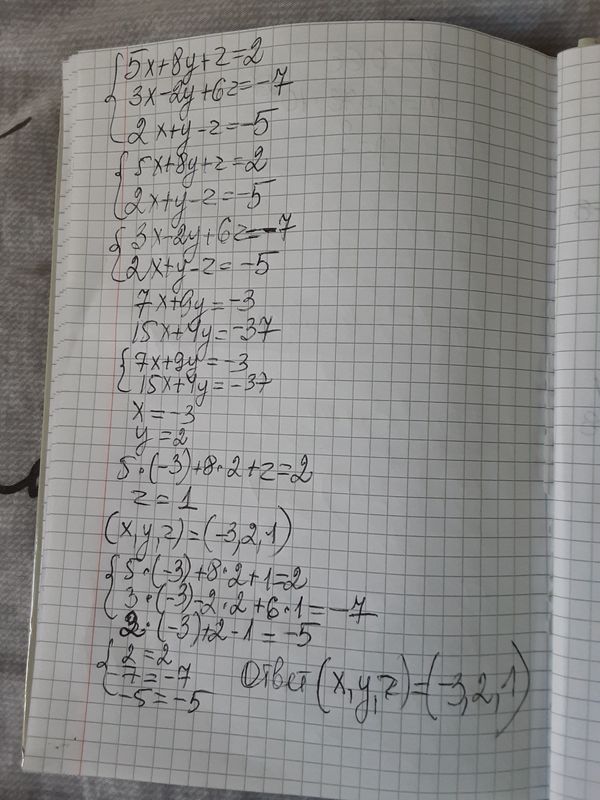 5x+8y+z=2
3x-2y+6z=-7
2x+y-z=-5
5x+8y+z=2
2x+y-z=-5
3x-2y+6z=-7
2x+y-z=-5
7x+9y=-3
15x+4y=-37
7x+9y=-3
15x+4y=-37
x=-3
y=2
5·(-3)+8·2+z=2
z=1
(x,y,z)=(-3,2,1)
5·(-3)+8·2+1=2
3·(-3)-2·2+6·1=-7
2·(-3)+2-1=-5
2=2
-7=-7
-5=-5
Ответ (x,y,z)=(-3,2,1)